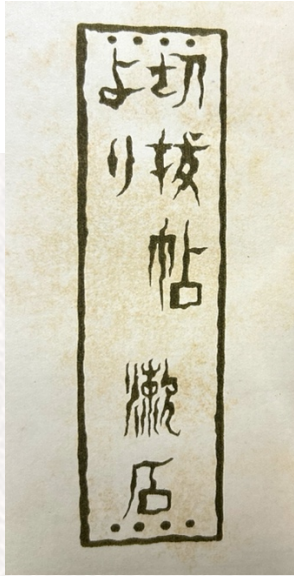 切抜帖
より
漱石